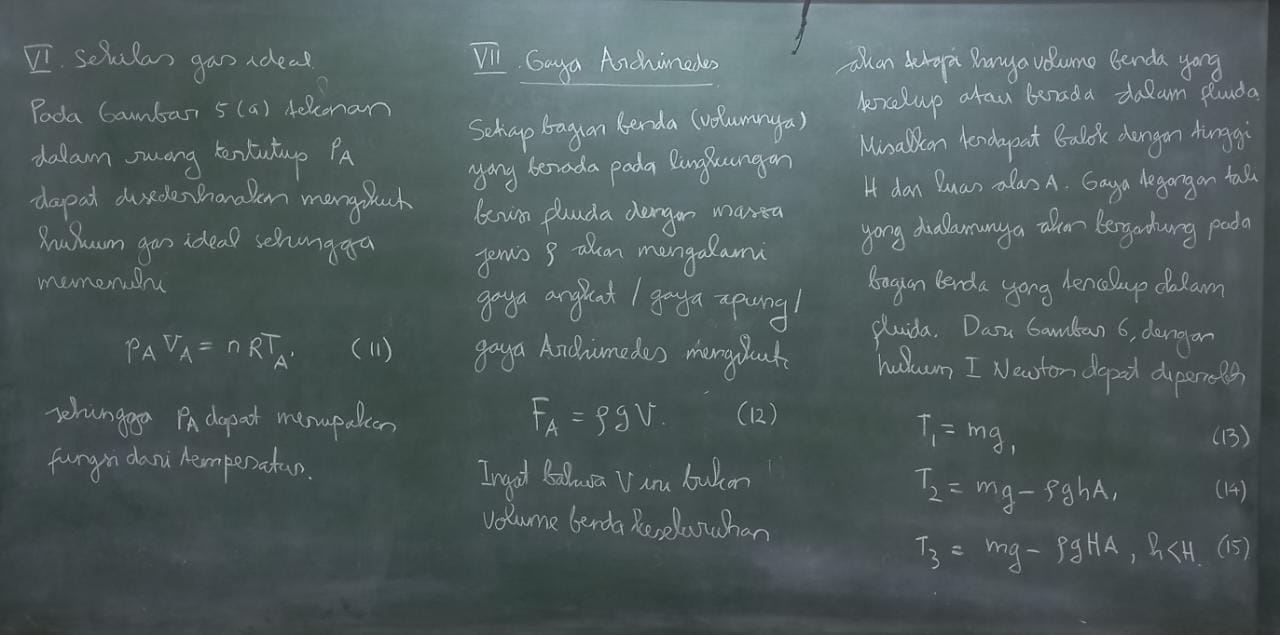 VI. Sekilas gas ideal
Pada Gambar 5 (a) tekanan
dalam ruang tertutup PA
dapat disederhanakan mengikuti
hukum gas ideal sehingga
memenuhi
PA VA = n R TA, (11)
sehingga PA dapat merupakan
fungsi dari temperatur.
VII. Gaya Archimedes
Setiap bagian benda (volumnya)
yang berada pada lingkungan
berisi fluida dengan massa
jenis ρ akan mengalami
gaya angkat / gaya apung /
gaya Archimedes mengikuti
FA = ρgV. (12)
Ingat bahwa V ini bukan
volume benda keseluruhan
akan tetapi hanya volume benda yang
tercelup atau berada dalam fluida.
Misalkan terdapat balok dengan tinggi
H dan luas alas A. Gaya tegangan tali
yang dialaminya akan bergantung pada
bagian benda yang tercelup dalam
fluida. Dari Gambar 6, dengan
hukum I Newton dapat diperoleh
T1 = mg, (13)
T2 = mg − ρghA, (14)
T3 = mg − ρgHA, h<H. (15)